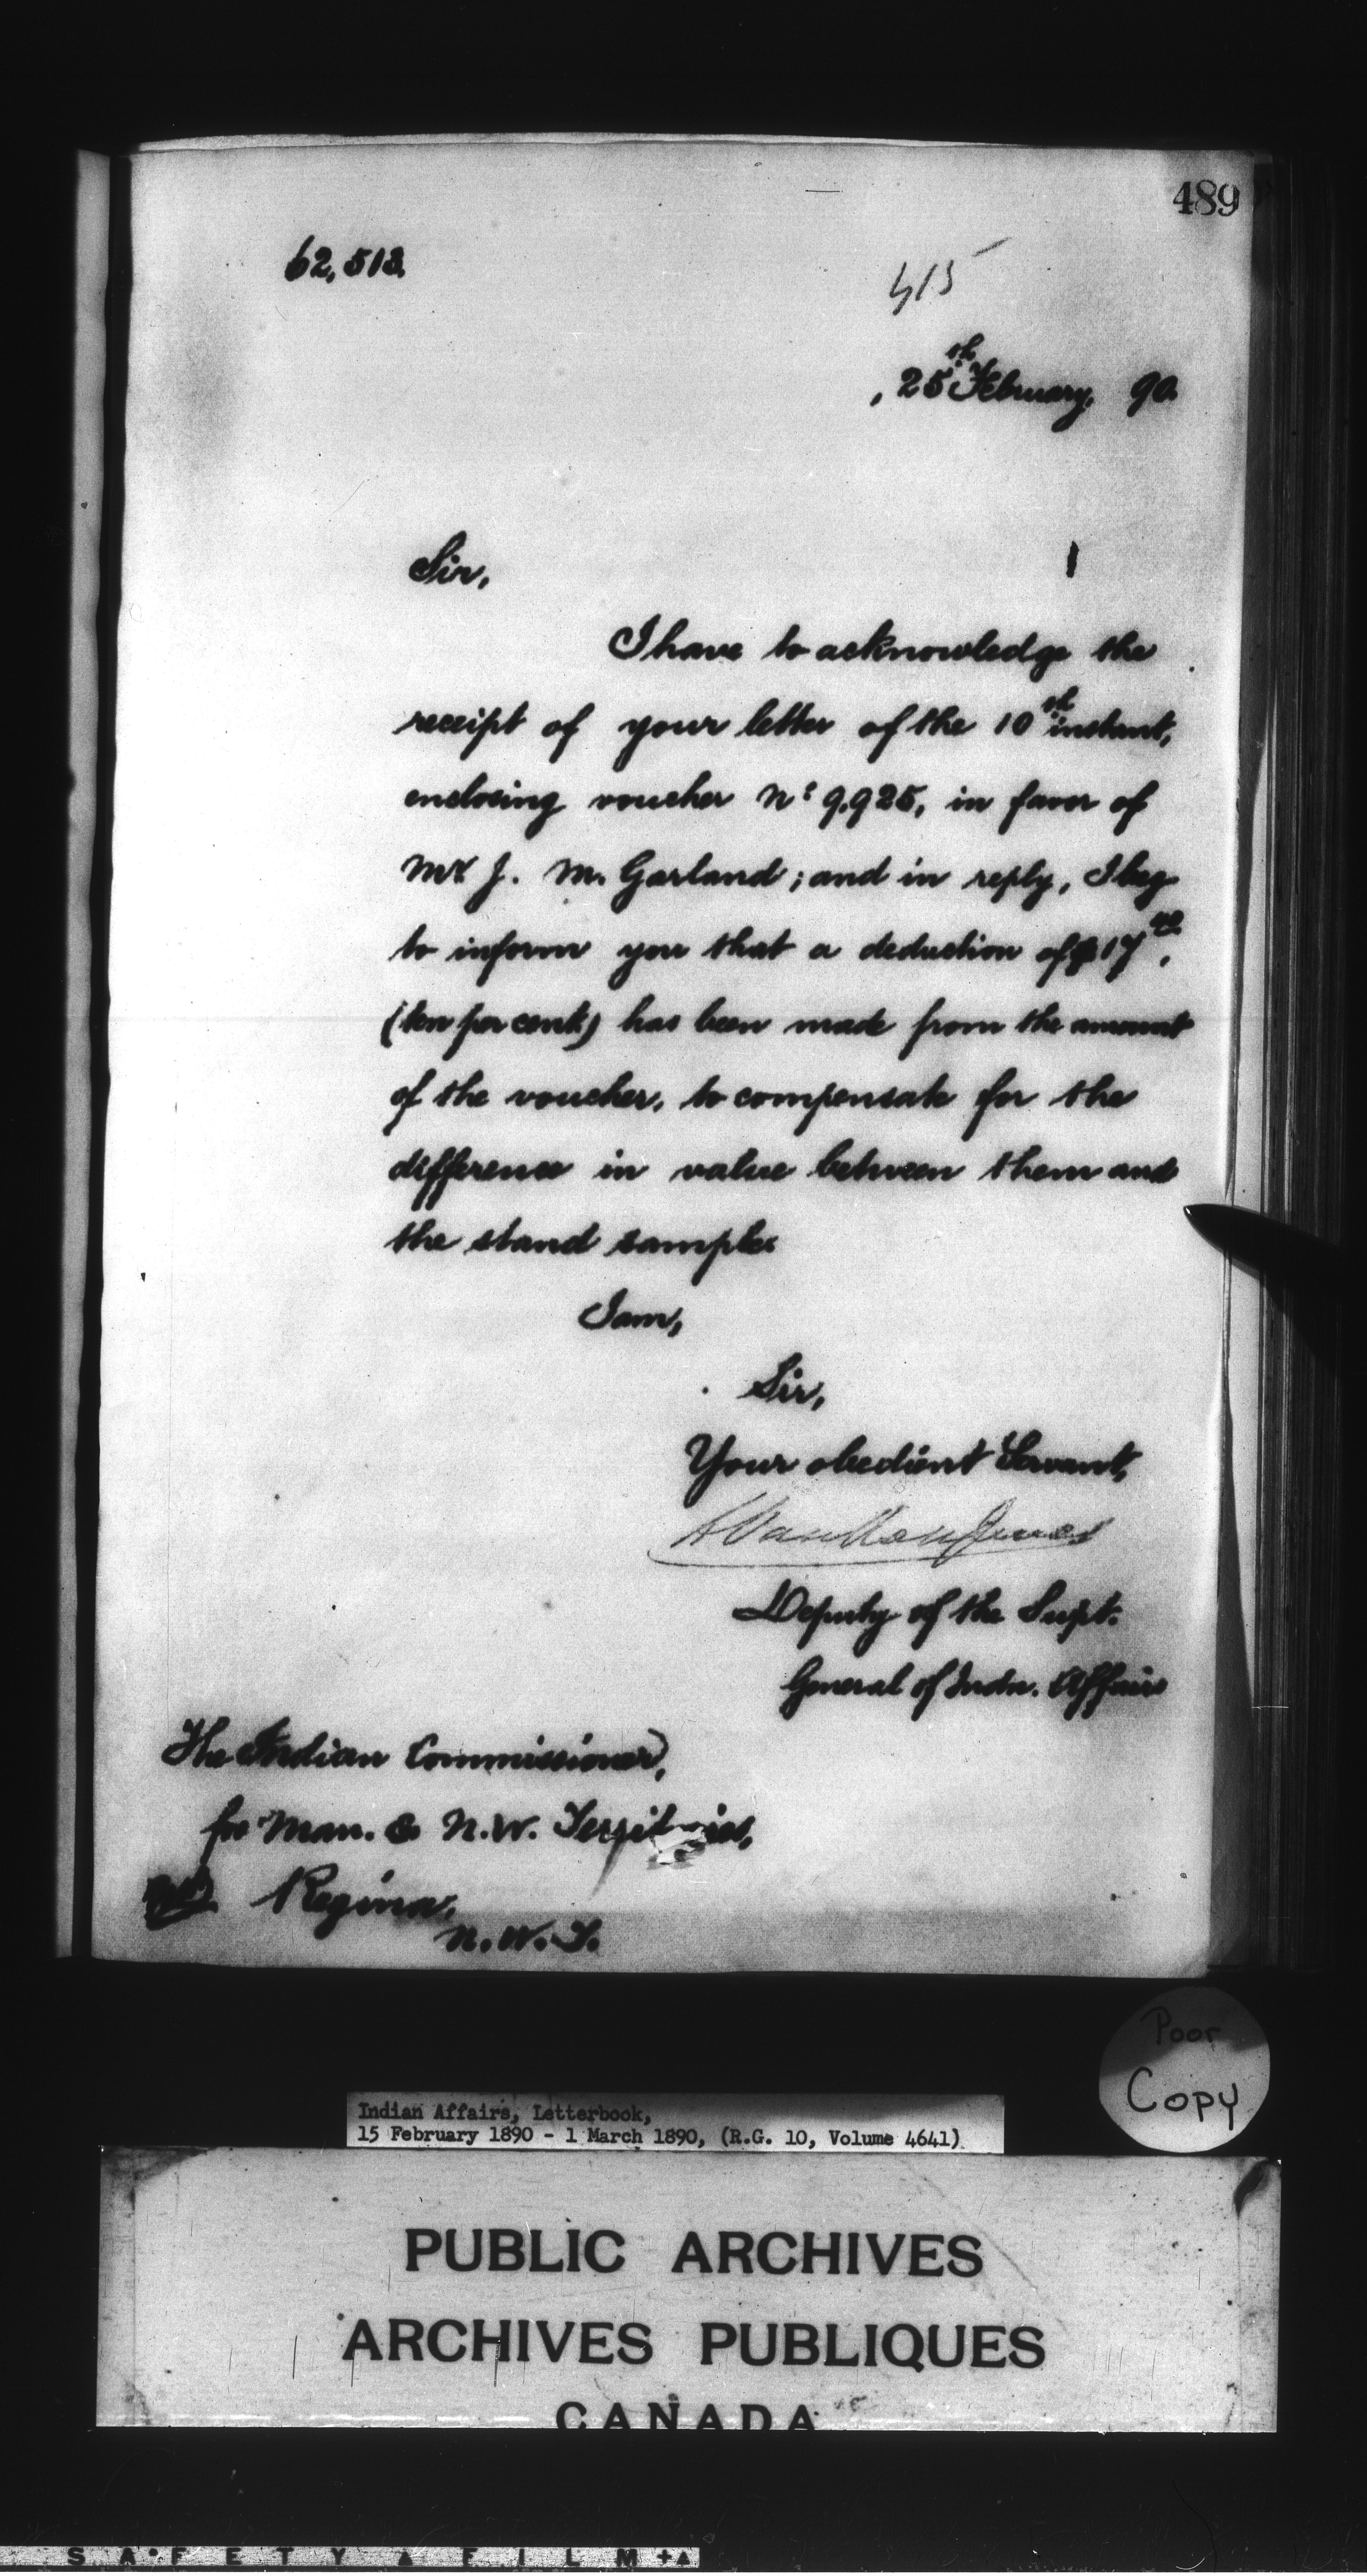 489
62,513.
415
, 25th February, 90.
Sir,
I have to acknowledge the
receipt of your letter of the 10th instant,
enclosing voucher No 9,925, in favor of
Mr J. M. Garland; and in reply, I beg
to inform you that a deduction of $17
(ten per cent) has been made from the amount
of the voucher, to compensate for the
difference in value between them and
the stand samples
I am,
Sir,
Your obedient Servant,
L Vankoughnet
Deputy of the Supt.
General of Indn. Affairs
The Indian Commissioner,
for Man. & N.W. Territories,
Regina,
N.W.T.
Poor
Copy
Indian Affairs, Letterbook,
15 February 1890 - 1 March 1890, (R.G. 10, Volume 4641)
PUBLIC ARCHIVES
ARCHIVES PUBLIQUES
CANADA
SAFETY FILM